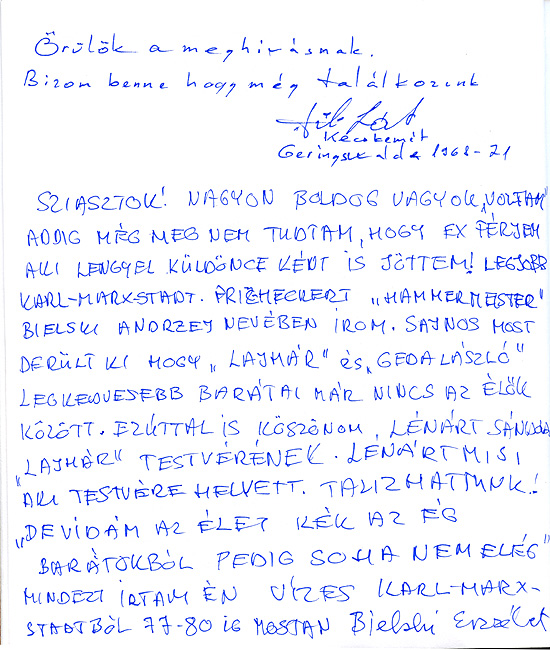 Örülök a meghívásnak.
Bizom benne hogy még találkozunk
Kecskemét
Geringswalde 1968-71
SZIASZTOK! NAGYON BOLDOG VAGYOK, "VOLTAM"
ADDIG MÉG MEG NEM TUDTAM, HOGY EX FÉRJEM
AKI LENGYEL KÜLDÖNCE KÉNT IS JÖTTEM! LEGJOBB
KARL-MARX-STADT. "HAMMERMESTER"
BIELSKI ANDRZEJ NEVÉBEN ÍROM. SAJNOS MOST
DERÜLT KI HOGY "LAJHÁR" és "GEDA LÁSZLÓ"
LEGKEDVESEBB BARÁTAI MÁR NINCS AZ ÉLŐK
KÖZÖTT. EZÚTTAL IS KÖSZÖNOM, LÉNÁRT SÁNDOR
"LAJHÁR" TESTVÉRÉNEK. LÉNÁRT MISI
AKI TESTVÉRE HELYETT. TALIZHATTUNK!
"DE VIDÁM AZ ÉLET KÉK AZ ÉG
BARÁTOKBÓL PEDIG SOHA NEM ELÉG"
MINDEZT ÍRTAM ÉN VIZES KARL-MARX-
STADTBÓL 77-80 IG MOSTAN Bielski Erzsébet